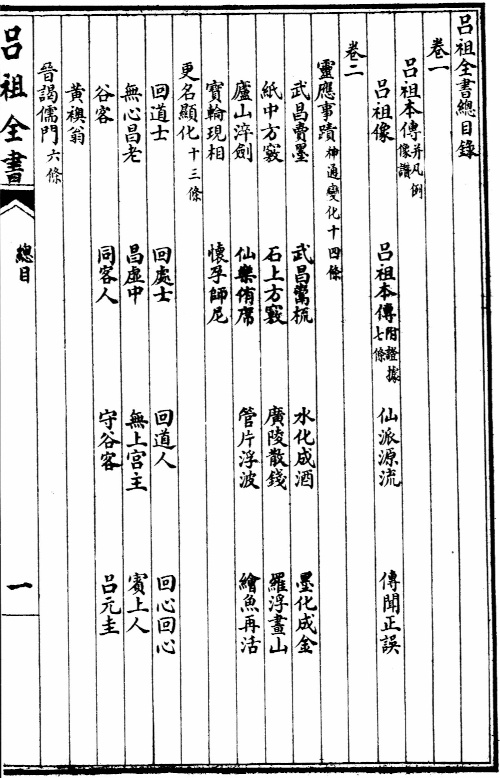 呂祖全書總目錄
卷一
呂祖本傳并凡例像讚
呂祖像 呂祖本傳附證據七條 仙派源流 傳聞正誤
卷二
靈應事蹟神通變化十四條
武昌賣墨 武昌鬻梳 水化成酒 墨化成金
紙中方竅 石上方竅 廣陵散錢 羅浮畫山
廬山淬劍 仙樂侑席 管片浮波 繪魚再活
寶輪現相 懷孕師尼
更名顯化十三條
回道士 回處士 回道人 回心回心
無心昌老 昌虛中 無上宮主 賓上人
谷客 同客人 守谷客 呂元圭
黃襖翁
晉謁儒門六條
呂祖全書 總目 一